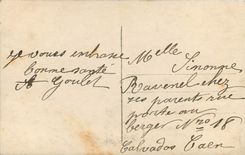 je vous embrasse
bonne santé
A Goulet
Melle
Simonne
Ravenel chez
ses parents rue
porte au
berger Nro 18
Calvados Caen